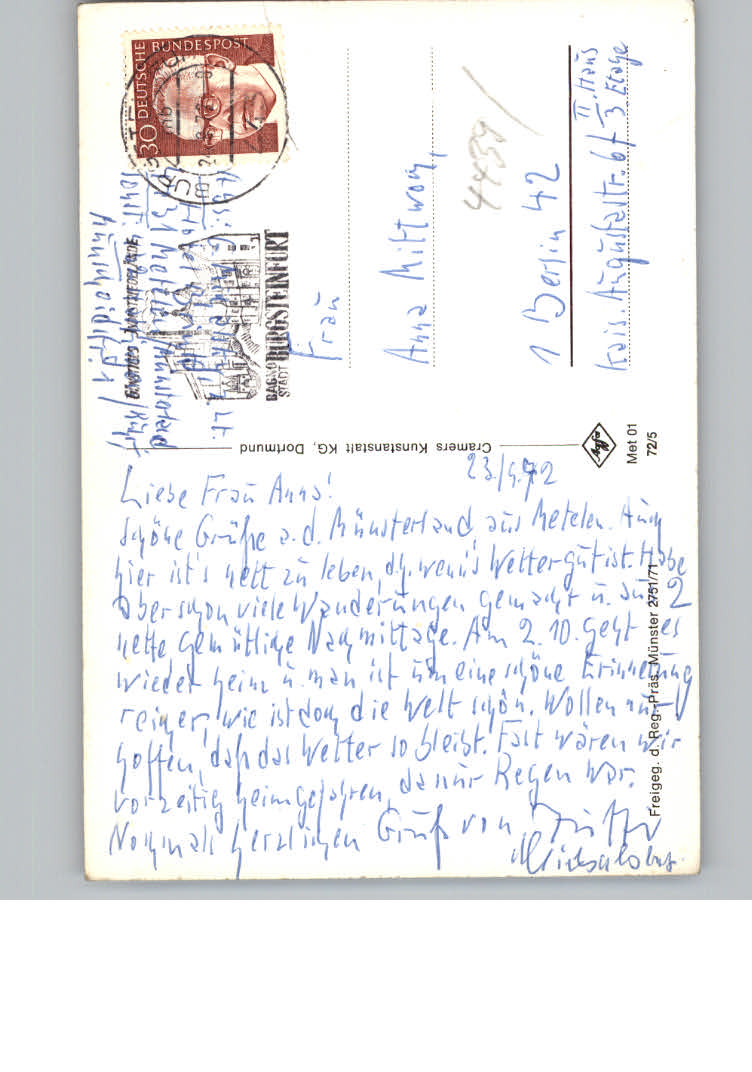 23./9.72
Liebe Frau Anna!
schöne Grüße a. d. Münsterland aus Metelen. Auch
hier ist's nett zu leben, d.h. wenn's Wetter gut ist. Habe
aber schon viele Wanderungen gemacht u. auch 2
nette gemütliche Nachmittage. Am 2. 10. geht es
wieder heim u. man ist um eine schöne Erinnerung
reicher, wie ist doch die Welt schön. Wollen nur
hoffen, daß das Wetter so bleibt. Fast wären wir
vorzeitig heimgefahren, da nur Regen war.
Nochmals herzlichen Gruß von
Frau
Anna Mittwoch,
1 Berlin 42
Kais. Augustastr. 67 II. Haus
3 Etage
4439
Abs:
4431 Metelen/Münsterland
DEUTSCHE BUNDESPOST
30
BAGNO
STADT BURGSTEINFURT
Cramers Kunstanstalt KG, Dortmund
Met 01
72/5
Freigeg. d. Reg.-Präs. Münster 2751/71